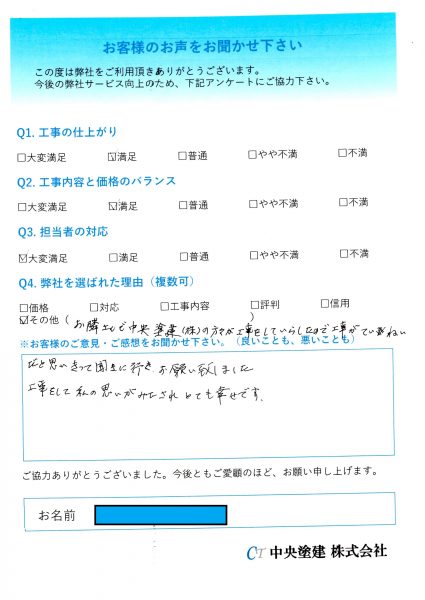 お客様のお声をお聞かせ下さい
この度は弊社をご利用頂きありがとうございます。
今後の弊社サービス向上のため、下記アンケートにご協力下さい。
Q1. 工事の仕上がり
□大変満足 ☑満足 □普通 □やや不満 □不満
Q2. 工事内容と価格のバランス
□大変満足 ☑満足 □普通 □やや不満 □不満
Q3. 担当者の対応
☑大変満足 □満足 □普通 □やや不満 □不満
Q4. 弊社を選ばれた理由（複数可）
□価格 □対応 □工事内容 □評判 □信用
☑その他（お隣さんで中央塗建(株)の方々が工事をしていらしたので工事がてい寧ねい）
※お客様のご意見・ご感想をお聞かせ下さい。（良いことも、悪いことも）
だと思いきって聞きに行きお願い致しました
工事をして私の思いがみたされとても幸せです。
ご協力ありがとうございました。今後ともご愛顧のほど、お願い申し上げます。
お名前
CT 中央塗建 株式会社